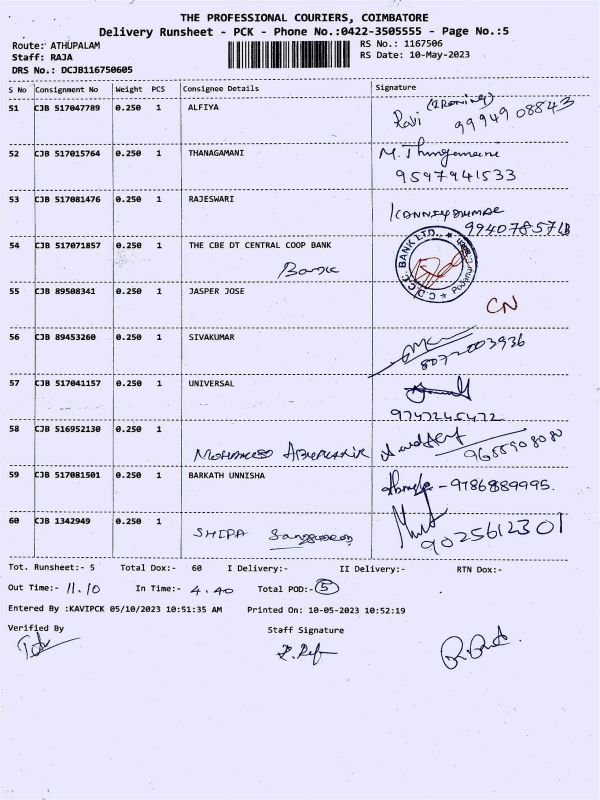 THE PROFESSIONAL COURIERS, COIMBATORE
Delivery Runsheet - PCK - Phone No.:0422-3505555 - Page No.:5
Route: ATHUPALAM
RS No.: 1167506
Staff: RAJA
RS Date: 10-May-2023
DRS No.: DCJB116750605
S No Consignment No Weight PCS Consignee Details Signature
51 CJB 517047789 0.250 1 ALFIYA Ravi (IRONING) 9994908843
52 CJB 517015764 0.250 1 THANAGAMANI M. Thangamani
9597941533
53 CJB 517081476 0.250 1 RAJESWARI
54 CJB 517071857 0.250 1 THE CBE DT CENTRAL COOP BANK
Bank
C.D.C.C. BANK LTD.,
55 CJB 89508341 0.250 1 JASPER JOSE CN
56 CJB 89453260 0.250 1 SIVAKUMAR
8072003936
57 CJB 517041157 0.250 1 UNIVERSAL
9747245472
58 CJB 516952130 0.250 1
MOHAMMED
59 CJB 517081501 0.250 1 BARKATH UNNISHA - 9786889995.
60 CJB 1342949 0.250 1 9025612301
Tot. Runsheet:- 5 Total Dox:- 60 I Delivery:- II Delivery:- RTN Dox:-
Out Time:- 11.10 In Time:- 4.40 Total POD:- 5
Entered By :KAVIPCK 05/10/2023 10:51:35 AM Printed On: 10-05-2023 10:52:19
Verified By Staff Signature